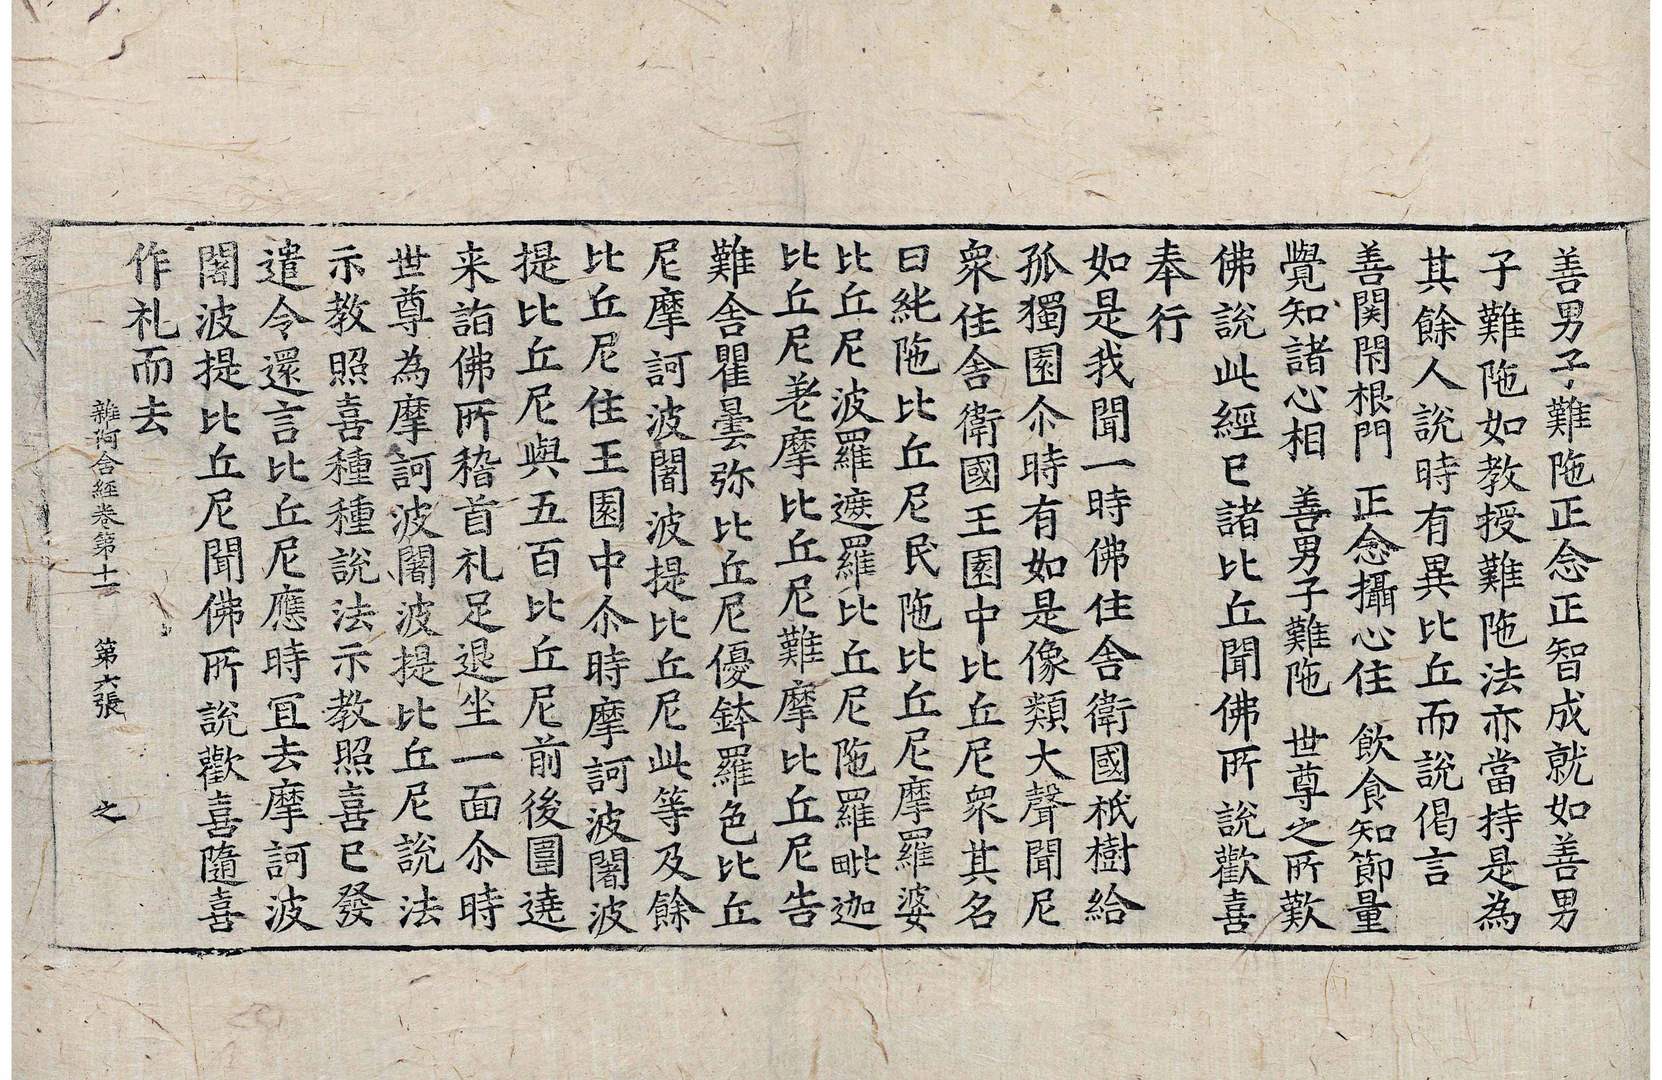 善男子難陁正念正智成就如善男
子難陁如教授難陁法亦當持是為
其餘人說時有異比丘而說偈言
善関閇根門 正念攝心住 飲食知節量
覺知諸心相 善男子難陁 世尊之所歎
佛說此經已諸比丘聞佛所說歡喜
奉行
如是我聞一時佛住舍衛國祇樹給
孤獨園尒時有如是像類大聲聞尼
衆住舍衛國王園中比丘尼衆其名
曰純陁比丘尼民陁比丘尼摩羅婆
比丘尼波羅遮羅比丘尼陁羅毗迦
比丘尼差摩比丘尼難摩比丘尼告
難舍瞿曇弥比丘尼優鉢羅色比丘
尼摩訶波闍波提比丘尼此等及餘
比丘尼住王園中尒時摩訶波闍波
提比丘尼與五百比丘尼前後圍遶
来詣佛所稽首礼足退坐一面尒時
世尊為摩訶波闍波提比丘尼說法
示教照喜種種說法示教照喜已發
遣令還言比丘尼應時冝去摩訶波
闍波提比丘尼聞佛所說歡喜隨喜
作礼而去
雜阿含經卷第十一 第六張 之